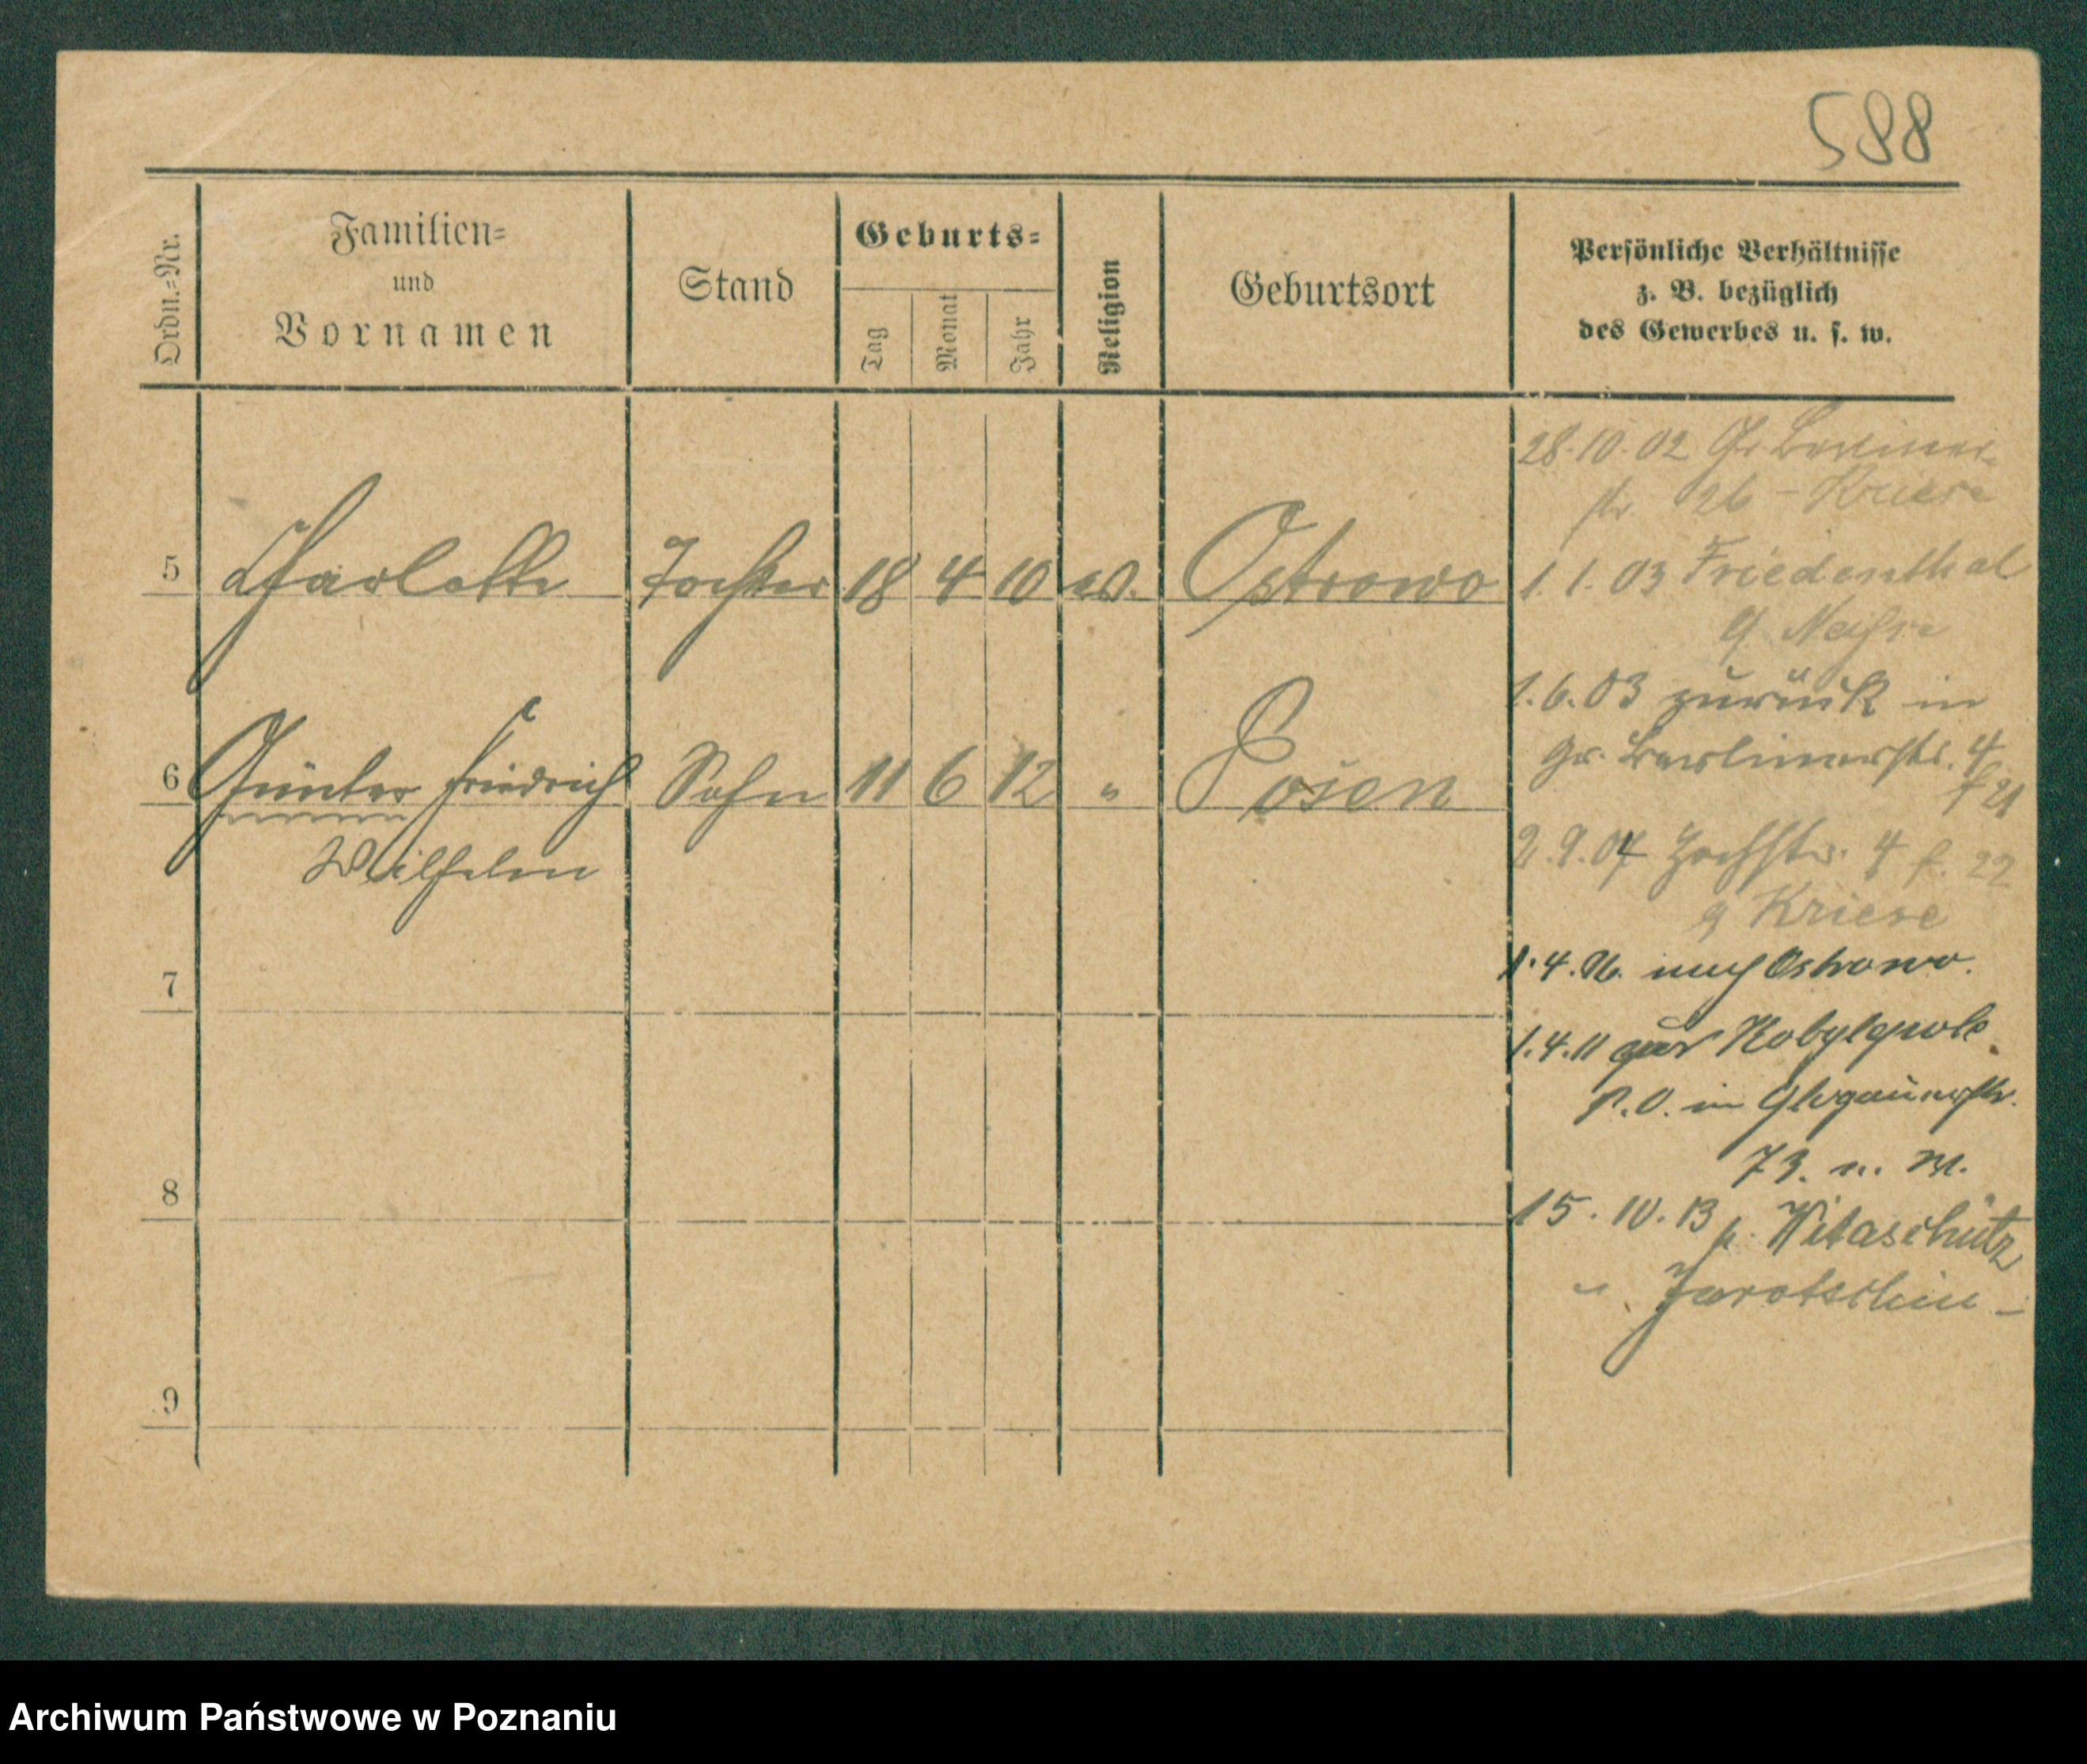 588
Ordn.-Nr.
Familien-
und
Vornamen
Stand
Geburts-
Tag
Monat
Jahr
Religion
Geburtsort
Persönliche Verhältnisse
z. B. bezüglich
des Gewerbes u. s. w.
5 Charlotte Tochter 18 4 10 ev. Ostrowo
6 Günter Friedrich Sohn 11 6 12 " Posen
Wilhelm
7
8
9
28.10.02 Gr. Berliner-
str. 26 - Kriese
1.1.03 Friedenthal
1.6.03 zurück in
Gr. Berlinerstr. 4
f 21
2.9.04 Hochstr. 4 f. 22
Kriese
1.4.06. nach Ostrowo.
1.4.11 Kobylepole
P.O. in Glogauerstr.
73. n. M.
15.10.13 Witaschütz
Jarotschin -
Archiwum Państwowe w Poznaniu